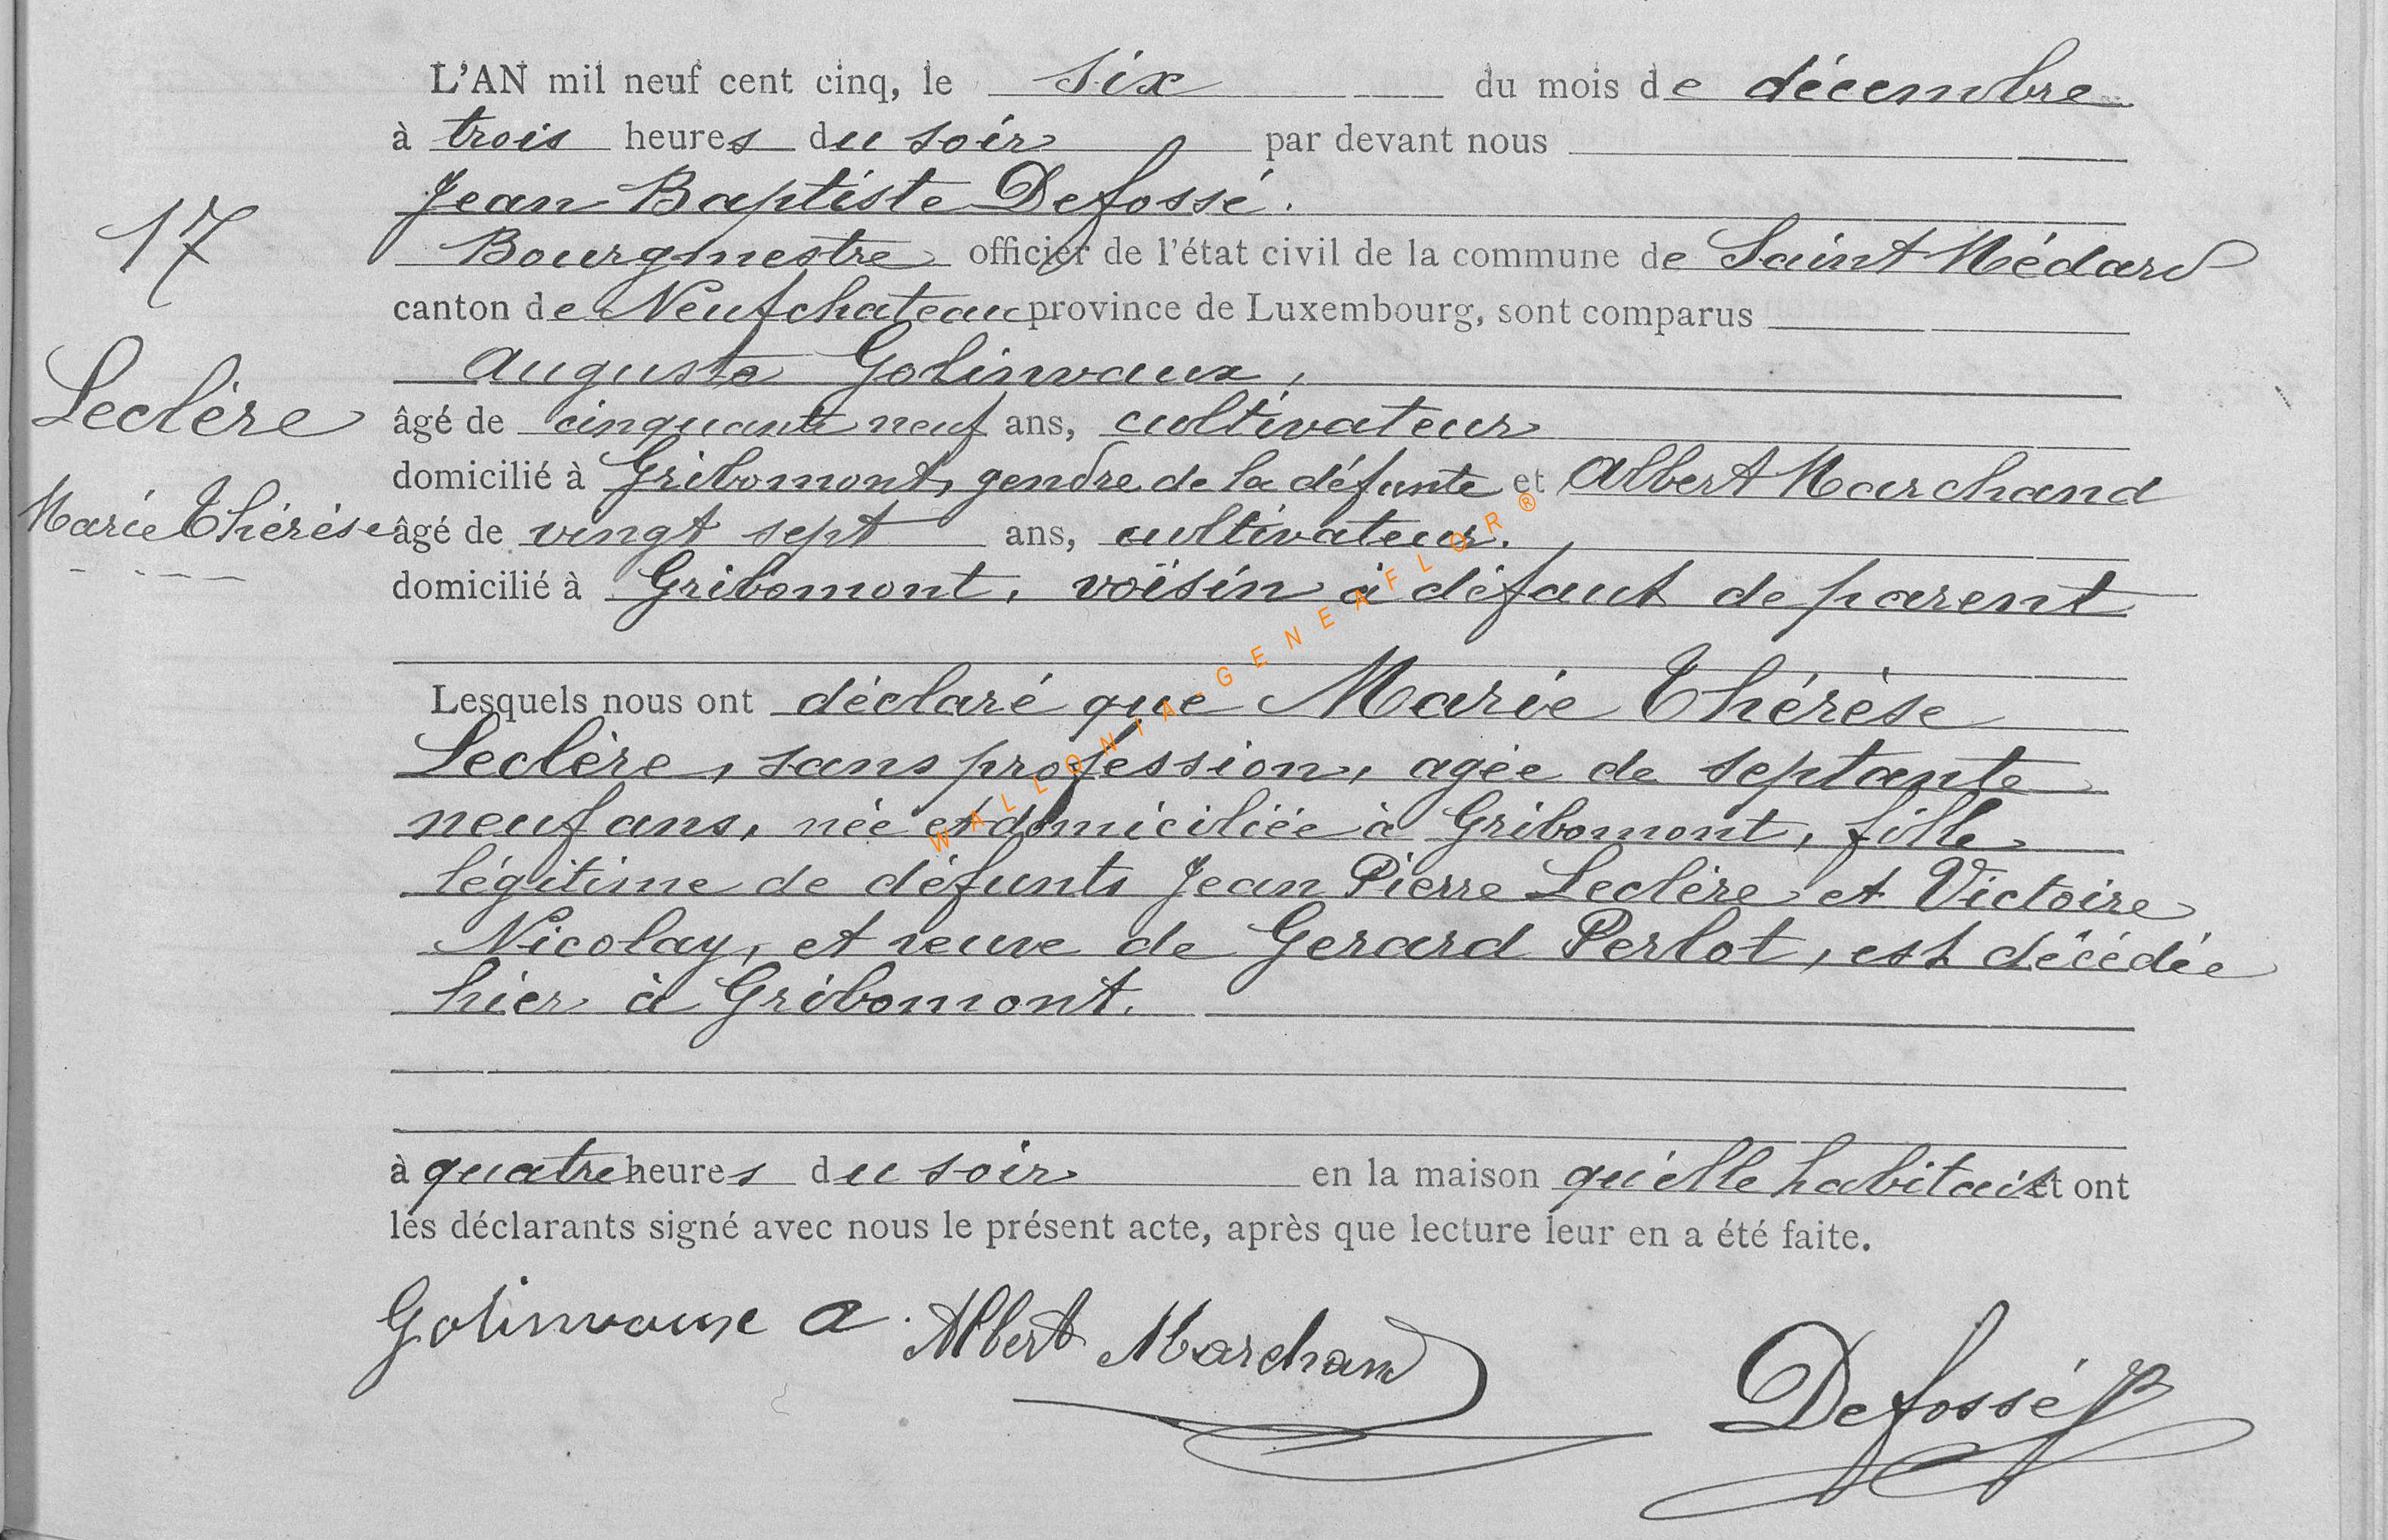 L'AN mil neuf cent cinq, le six du mois de décembre
à trois heures du soir par devant nous
Jean Baptiste Defossé.
Bourgmestre officier de l'état civil de la commune de Saint Médard
canton de Neufchateau province de Luxembourg, sont comparus
Auguste Golinvaux,
âgé de cinquante neuf ans, cultivateur
domicilié à Gribomont, gendre de la défunte et Albert Marchand
âgé de vingt sept ans, cultivateur.
domicilié à Gribomont, voisin à défaut de parent
17
Leclère
Marie Thérèse
Lesquels nous ont déclaré que Marie Thérèse
Leclère, sans profession, agée de septante
neuf ans, née et domiciliée à Gribomont, fille
légitime de défunts Jean Pierre Leclère et Victoire
Nicolay, et veuve de Gerard Perlot, est décédée
hier à Gribomont.
à quatre heures du soir en la maison qu'elle habitait et ont
les déclarants signé avec nous le présent acte, après que lecture leur en a été faite.
Golinvaux A. Albert Marchand
Defossé JB
WALLONIA-GENEAFLOR®